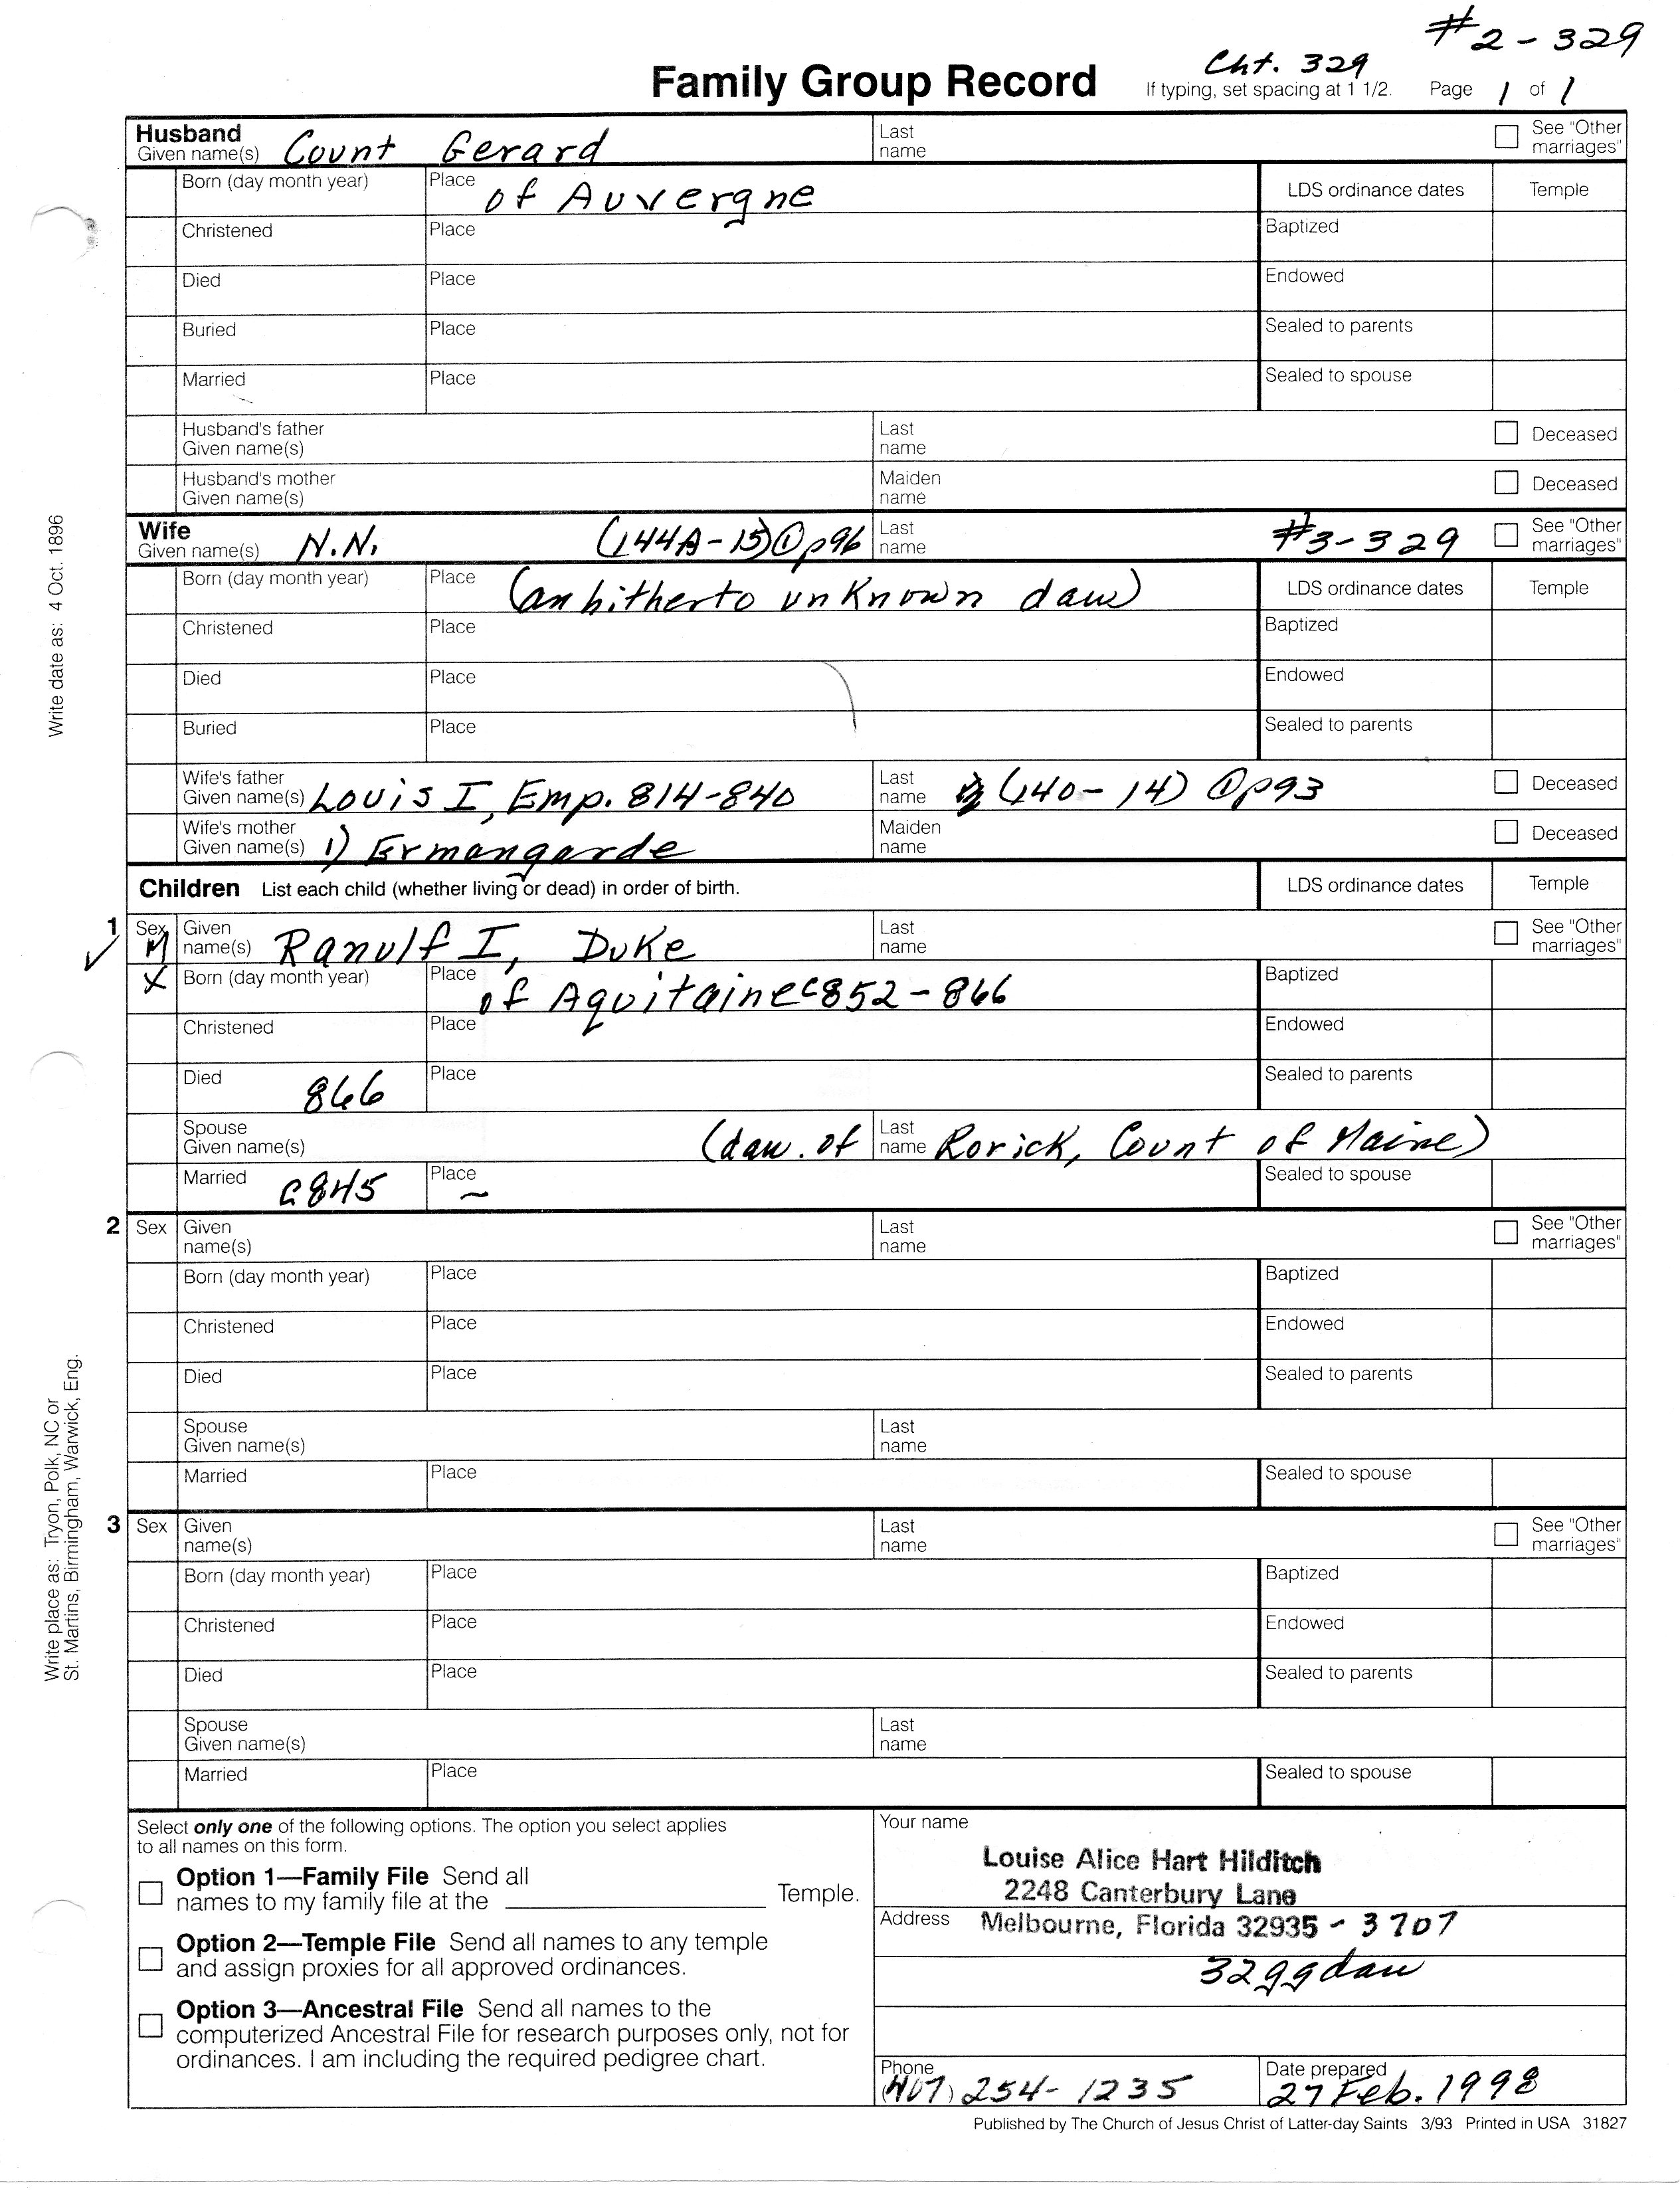 #2-329
Cht. 329
Family Group Record If typing, set spacing at 1 1/2. Page 1 of 1
Husband
Given name(s) Count Gerard Last name See "Other marriages"
Born (day month year) Place of Auvergne LDS ordinance dates Temple
Christened Place Baptized
Died Place Endowed
Buried Place Sealed to parents
Married Place Sealed to spouse
Husband's father Given name(s) Last name Deceased
Husband's mother Given name(s) Maiden name Deceased
Wife
Given name(s) N.N. (144A-15) ① p96 Last name #3-329 See "Other marriages"
Born (day month year) Place (an hitherto unknown daw) LDS ordinance dates Temple
Christened Place Baptized
Died Place Endowed
Buried Place Sealed to parents
Wife's father Given name(s) Louis I, Emp. 814-840 Last name (140-14) ① p93 Deceased
Wife's mother Given name(s) 1) Ermangarde Maiden name Deceased
Children List each child (whether living or dead) in order of birth. LDS ordinance dates Temple
1 Sex M Given name(s) Ranulf I, Duke Last name See "Other marriages"
X Born (day month year) Place of Aquitaine c852-866 Baptized
Christened Place Endowed
Died 866 Place Sealed to parents
Spouse Given name(s) (daw. of Last name Rorick, Count of Maine)
Married c845 Place ~ Sealed to spouse
2 Sex Given name(s) Last name See "Other marriages"
Born (day month year) Place Baptized
Christened Place Endowed
Died Place Sealed to parents
Spouse Given name(s) Last name
Married Place Sealed to spouse
3 Sex Given name(s) Last name See "Other marriages"
Born (day month year) Place Baptized
Christened Place Endowed
Died Place Sealed to parents
Spouse Given name(s) Last name
Married Place Sealed to spouse
Select only one of the following options. The option you select applies
to all names on this form.
Option 1—Family File Send all
names to my family file at the Temple.
Option 2—Temple File Send all names to any temple
and assign proxies for all approved ordinances.
Option 3—Ancestral File Send all names to the
computerized Ancestral File for research purposes only, not for
ordinances. I am including the required pedigree chart.
Your name
Louise Alice Hart Hilditch
2248 Canterbury Lane
Address Melbourne, Florida 32935 - 3707
32ggdaw
Phone (407) 254-1235 Date prepared 27 Feb. 1998
Published by The Church of Jesus Christ of Latter-day Saints 3/93 Printed in USA 31827
Write date as: 4 Oct. 1896
Write place as: Tryon, Polk, NC or
St. Martins, Birmingham, Warwick, Eng.